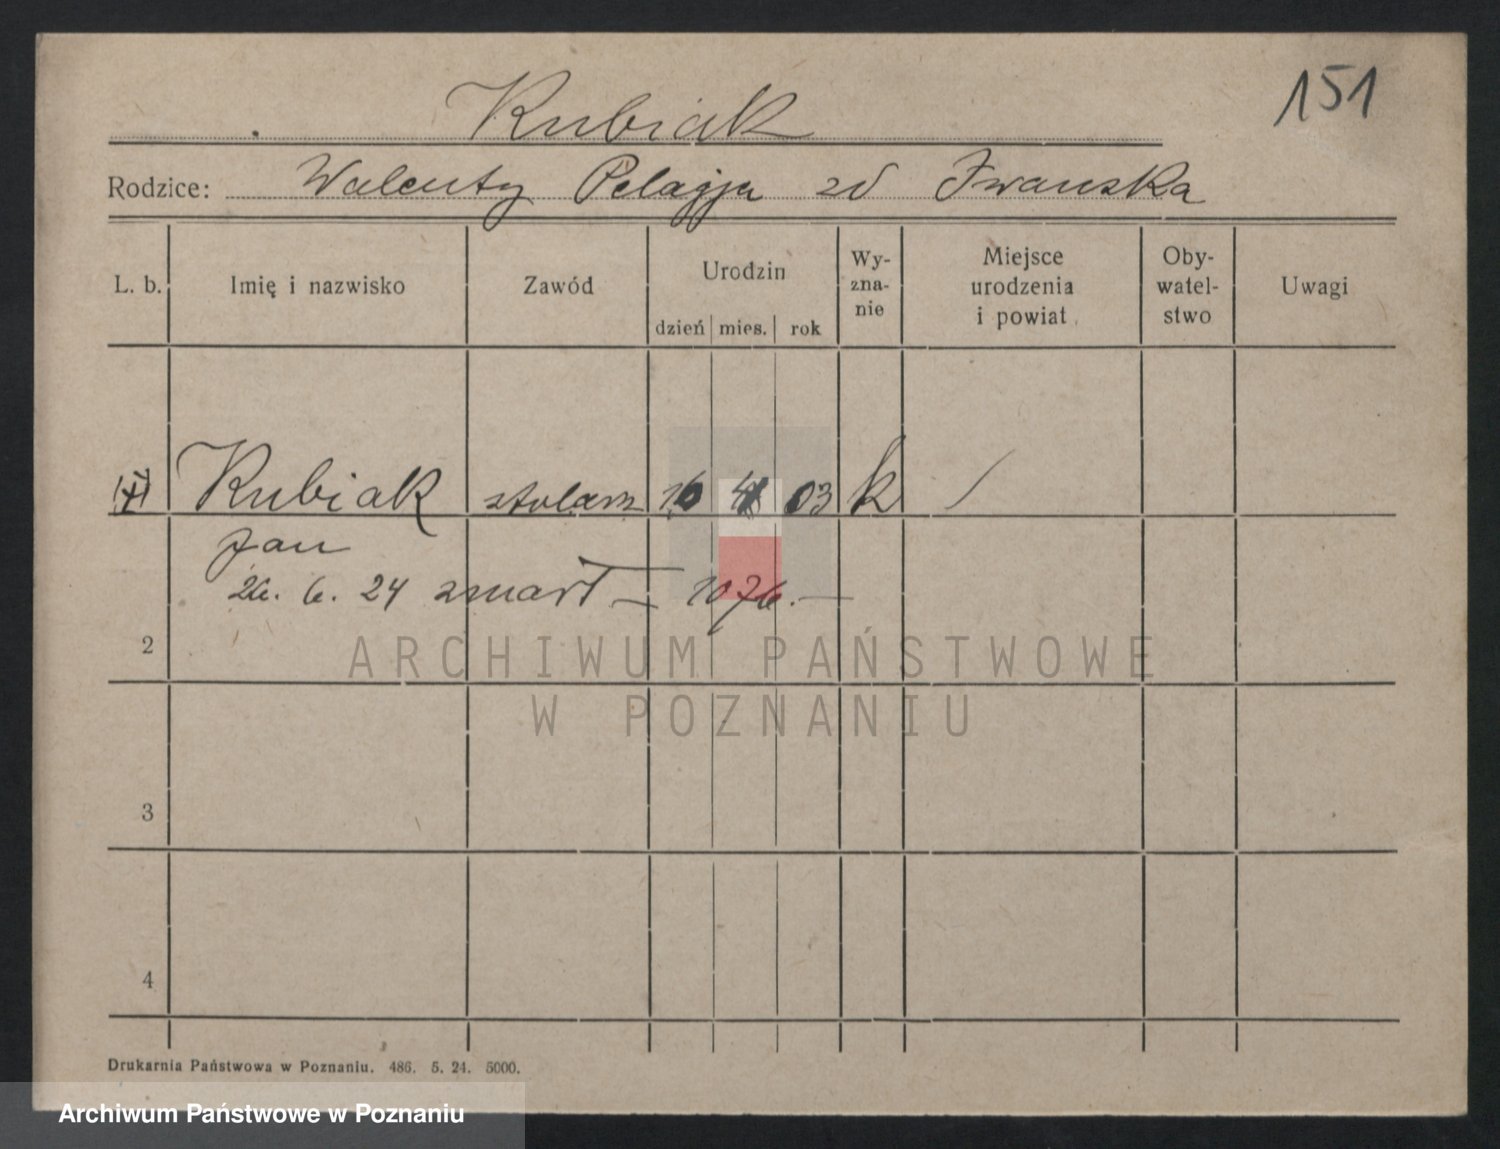 Kubiak
151
Rodzice: Walenty Pelagja zd Iwanska
L. b. Imię i nazwisko Zawód Urodzin dzień mies. rok Wy-zna-nie Miejsce urodzenia i powiat Oby-watel-stwo Uwagi
Kubiak stolarz 16 4 03 k
Jan
26. 6. 24 zmarł — 1076. —
2
ARCHIWUM PAŃSTWOWE
W POZNANIU
3
4
Drukarnia Państwowa w Poznaniu. 486. 5. 24. 5000.
Archiwum Państwowe w Poznaniu